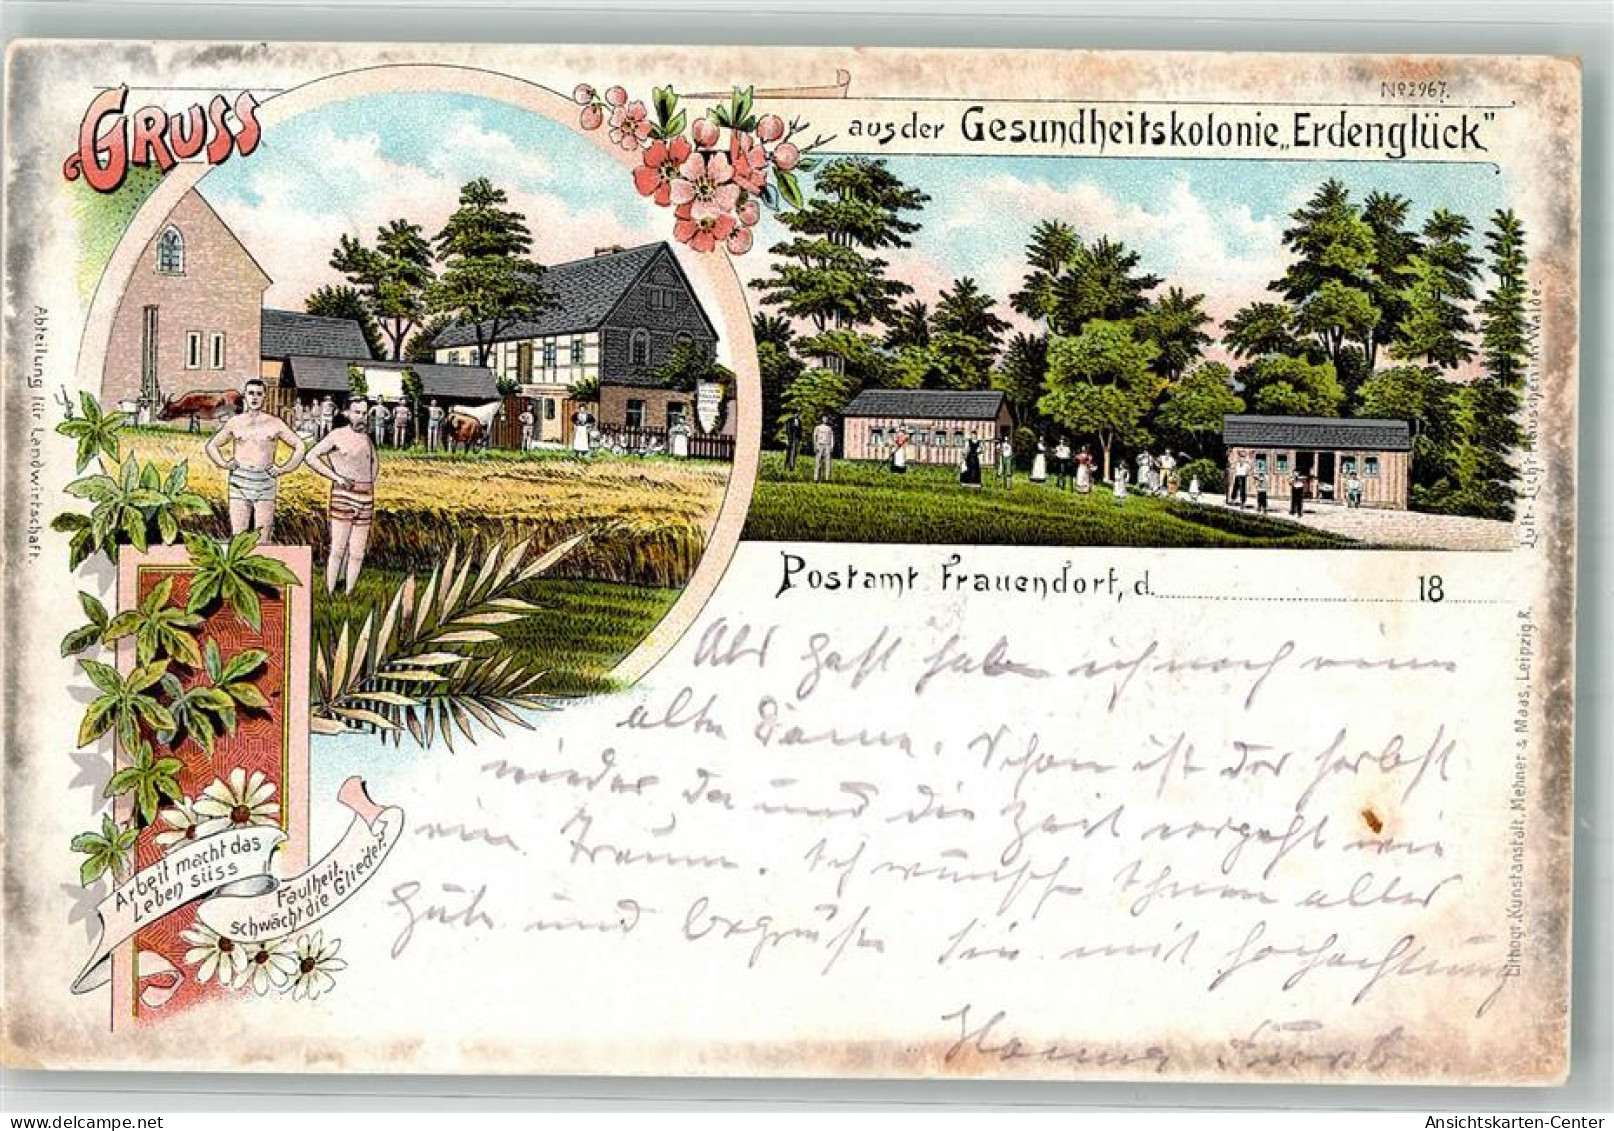 GRUSS
No 2967.
aus der Gesundheitskolonie „Erdenglück"
Abteilung für Landwirtschaft.
Luft-Licht-Häuschen im Walde.
Postamt Frauendorf, d. 18
Als Gast habe ich noch eine
alte Dame. Schon ist der Herbst
wieder da und die Zeit vergeht wie
ein Traum. Ich wünsche Ihnen alles
Gute und begrüße Sie mit Hochachtung
Arbeit macht das
Leben süss
Faulheit
schwächt die Glieder.
Lithogr. Kunstanstalt, Mehner & Maas, Leipzig R.
Ansichtskarten-Center